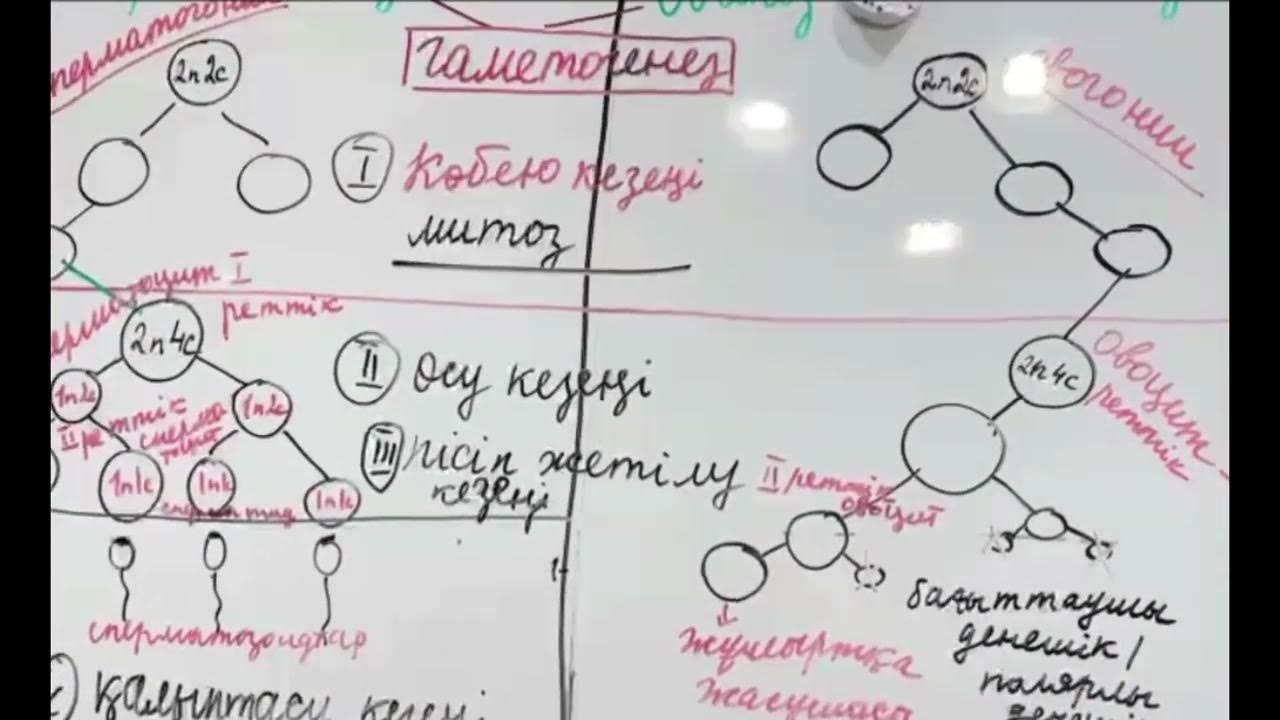 гаметогенез
2n2c
I Көбею кезеңі
митоз
I
реттік
2n4c
1n2c
1n2c
II реттік
1n1c
1n1c
1n1c
II Өсу кезеңі
III Пісіп жетілу
кезеңі
сперматозоидтар
Қалыптасу кезеңі
2n2c
овогонии
2n4c
овоцит
реттік
II реттік
овоцит
бағыттаушы
денешік /
полярлы
жұмыртқа
жасушасы